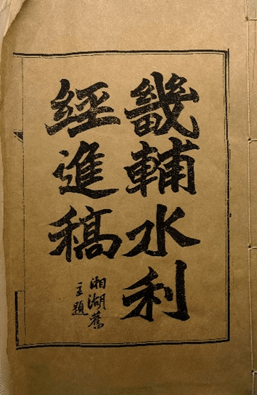 畿輔水利
經進稿
湘湖舊
主題